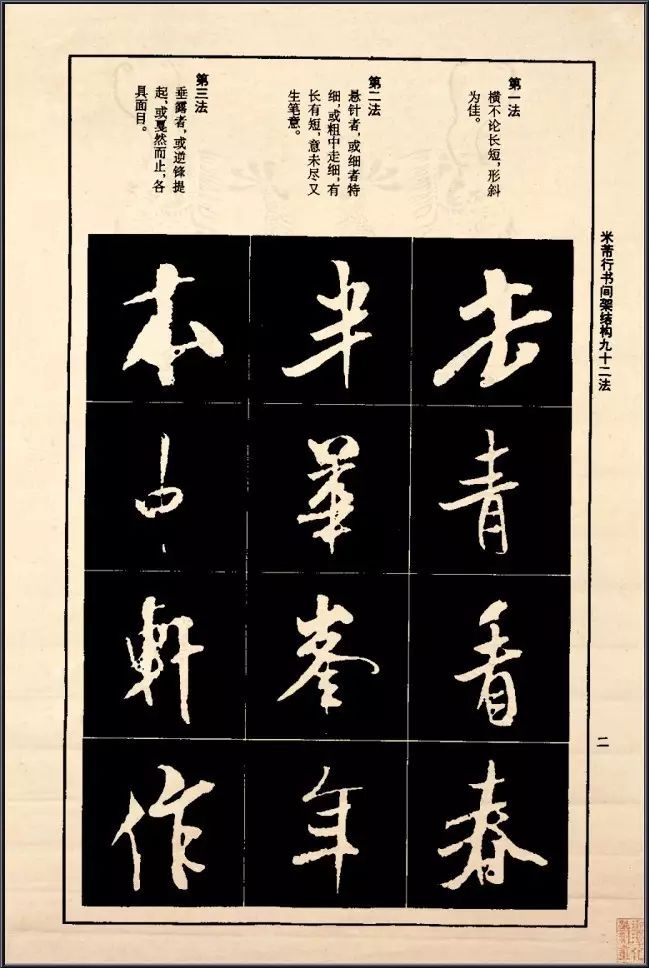 米芾行书间架结构九十二法
二
第一法
横不论长短，形斜
为佳。
第二法
悬针者，或细者特
细，或粗中走细，有
长有短，意未尽又
生笔意。
第三法
垂露者，或逆锋提
起，或戛然而止，各
具面目。
去青看春
半華峯年
本中軒作